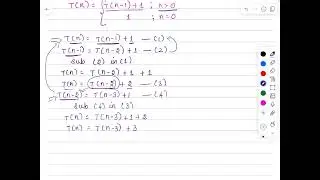 T(n) = { T(n-1) + 1 ; n>0
1 ; n=0
T(n) = T(n-1) + 1 — (1)
T(n-1) = T(n-2) + 1 — (2)
sub (2) in (1)
T(n) = T(n-2) + 1 + 1
T(n) = T(n-2) + 2 — (3)
T(n-2) = T(n-3) + 1 — (4)
sub (4) in (3)
T(n) = T(n-3) + 1 + 2
T(n) = T(n-3) + 3